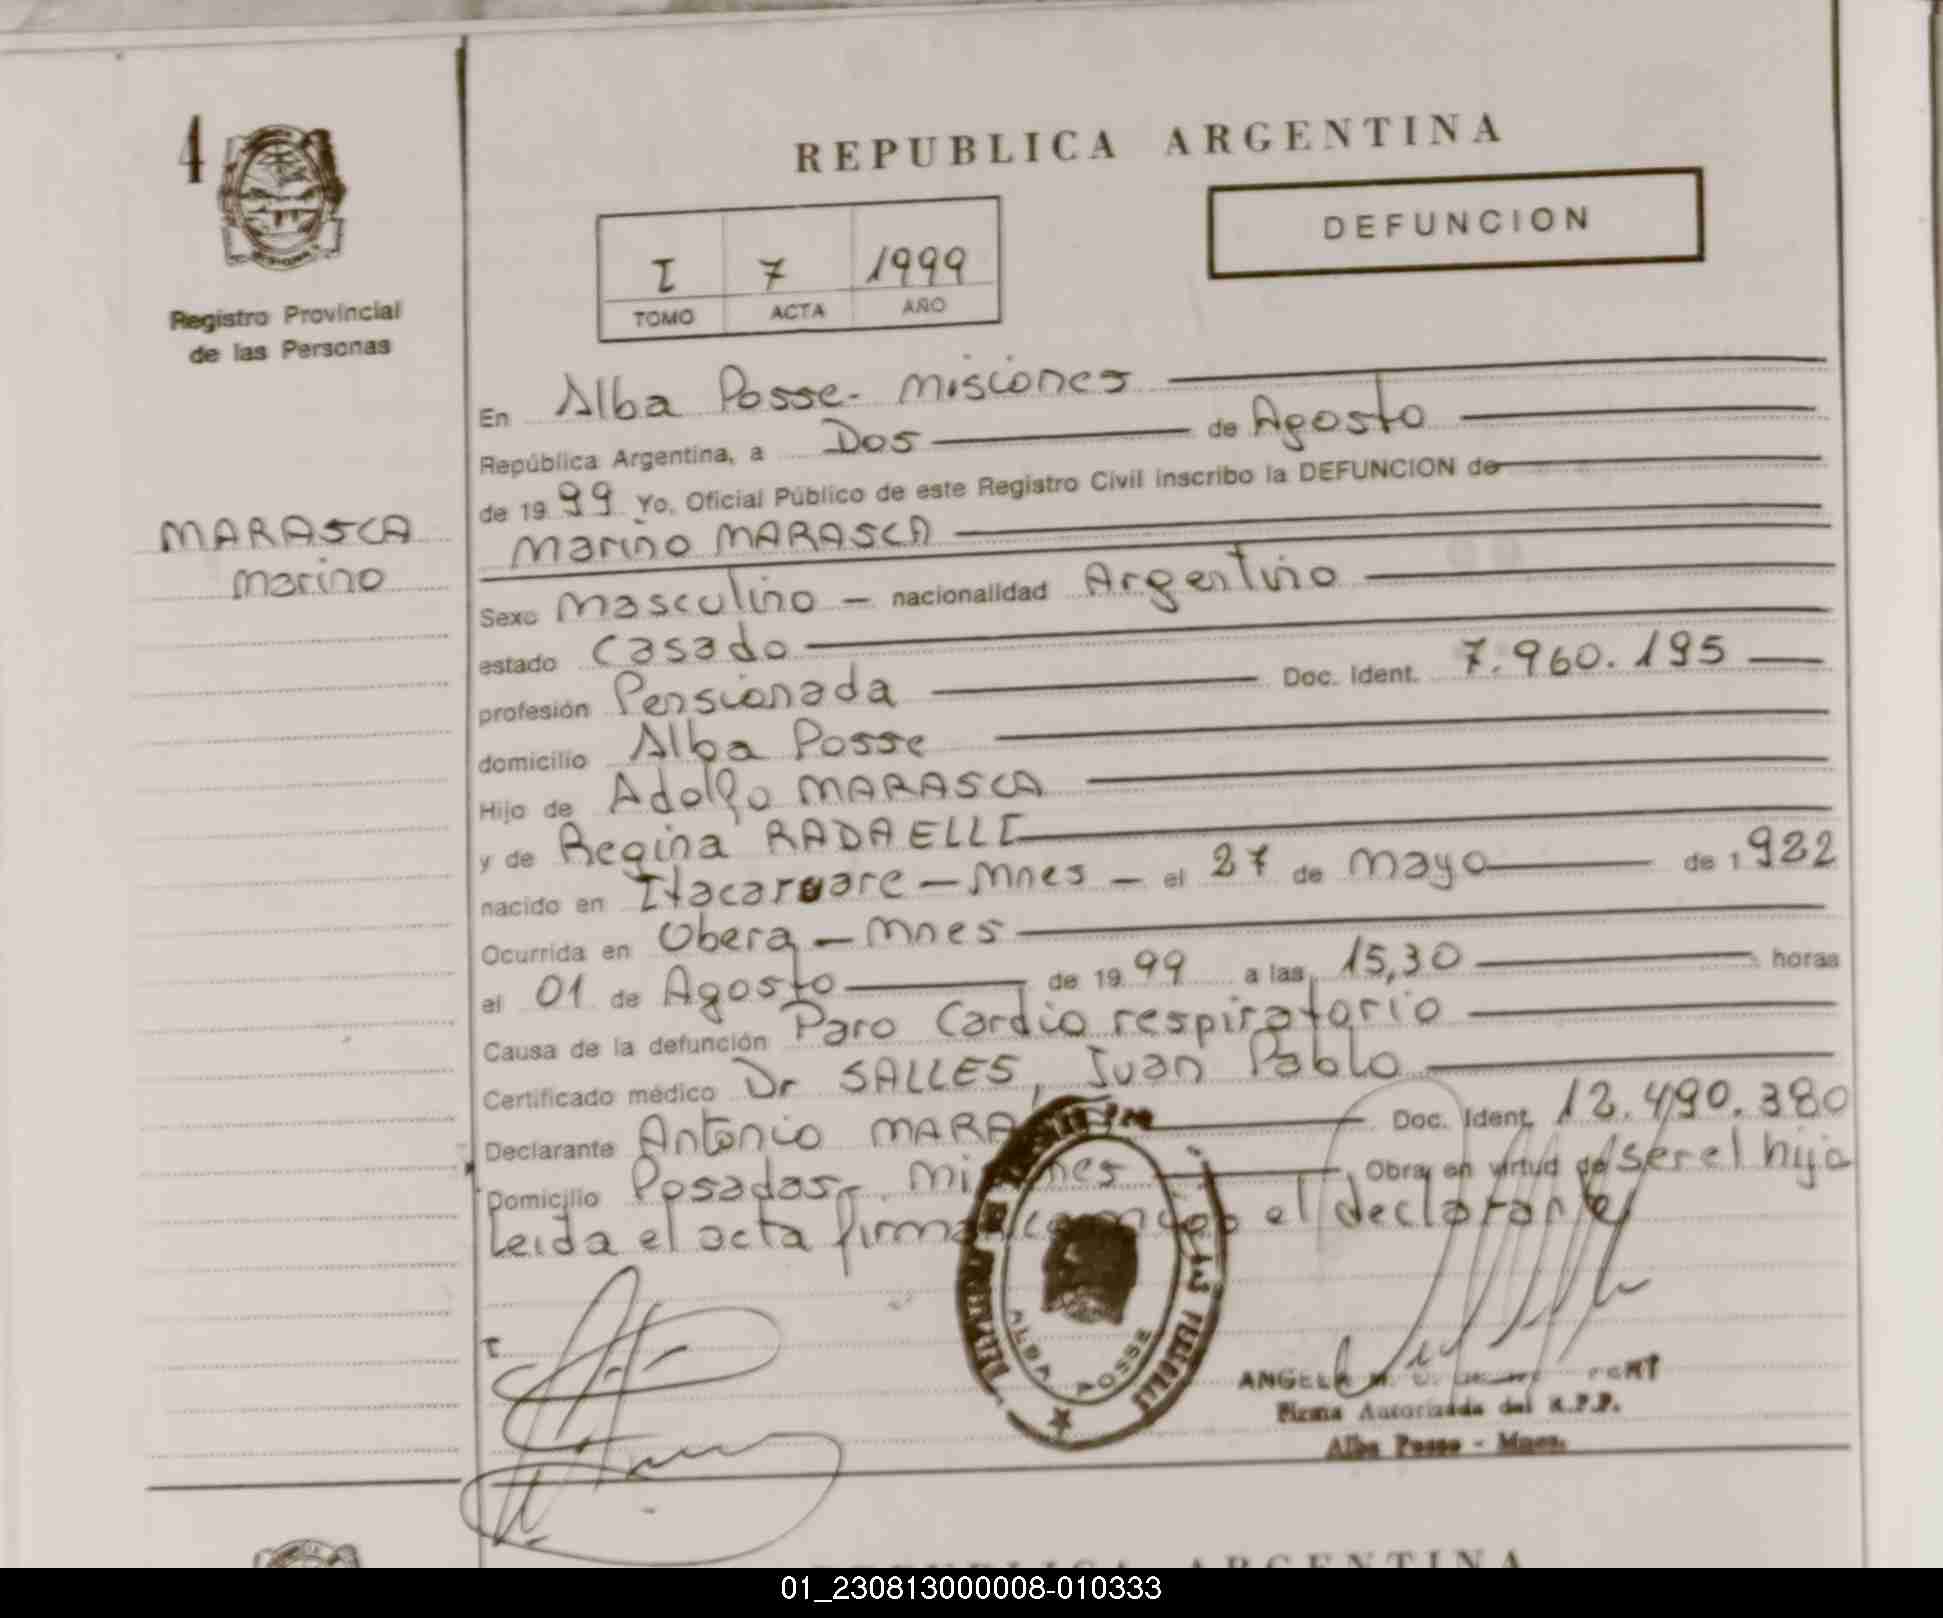 4
REPUBLICA ARGENTINA
DEFUNCION
I 7 1999
TOMO ACTA AÑO
Registro Provincial
de las Personas
MARASCA
Marino
En Alba Posse - Misiones
República Argentina, a Dos de Agosto
de 1999 Yo, Oficial Público de este Registro Civil inscribo la DEFUNCION de
Marino MARASCA
Sexo Masculino - nacionalidad Argentino
estado Casado
profesión Pensionada Doc. Ident. 7.960.195
domicilio Alba Posse
Hijo de Adolfo MARASCA
y de Regina RADAELLI
nacido en Itacaruare - Mnes - el 27 de Mayo de 1922
Ocurrida en Obera - Mnes
el 01 de Agosto de 1999 a las 15,30 horas
Causa de la defunción Paro Cardio respiratorio
Certificado médico Dr SALLES, Juan Pablo
Declarante Antonio MARA Doc. Ident. 12.490.380
Domicilio Posadas - Misiones Obra en virtud de ser el hijo
Leida el acta firma conmigo el declarante
ALBA POSSE
ANGELA M.
Firma Autorizada del R.P.P.
Alba Posse - Mnes.
REPUBLICA ARGENTINA
01_230813000008-010333